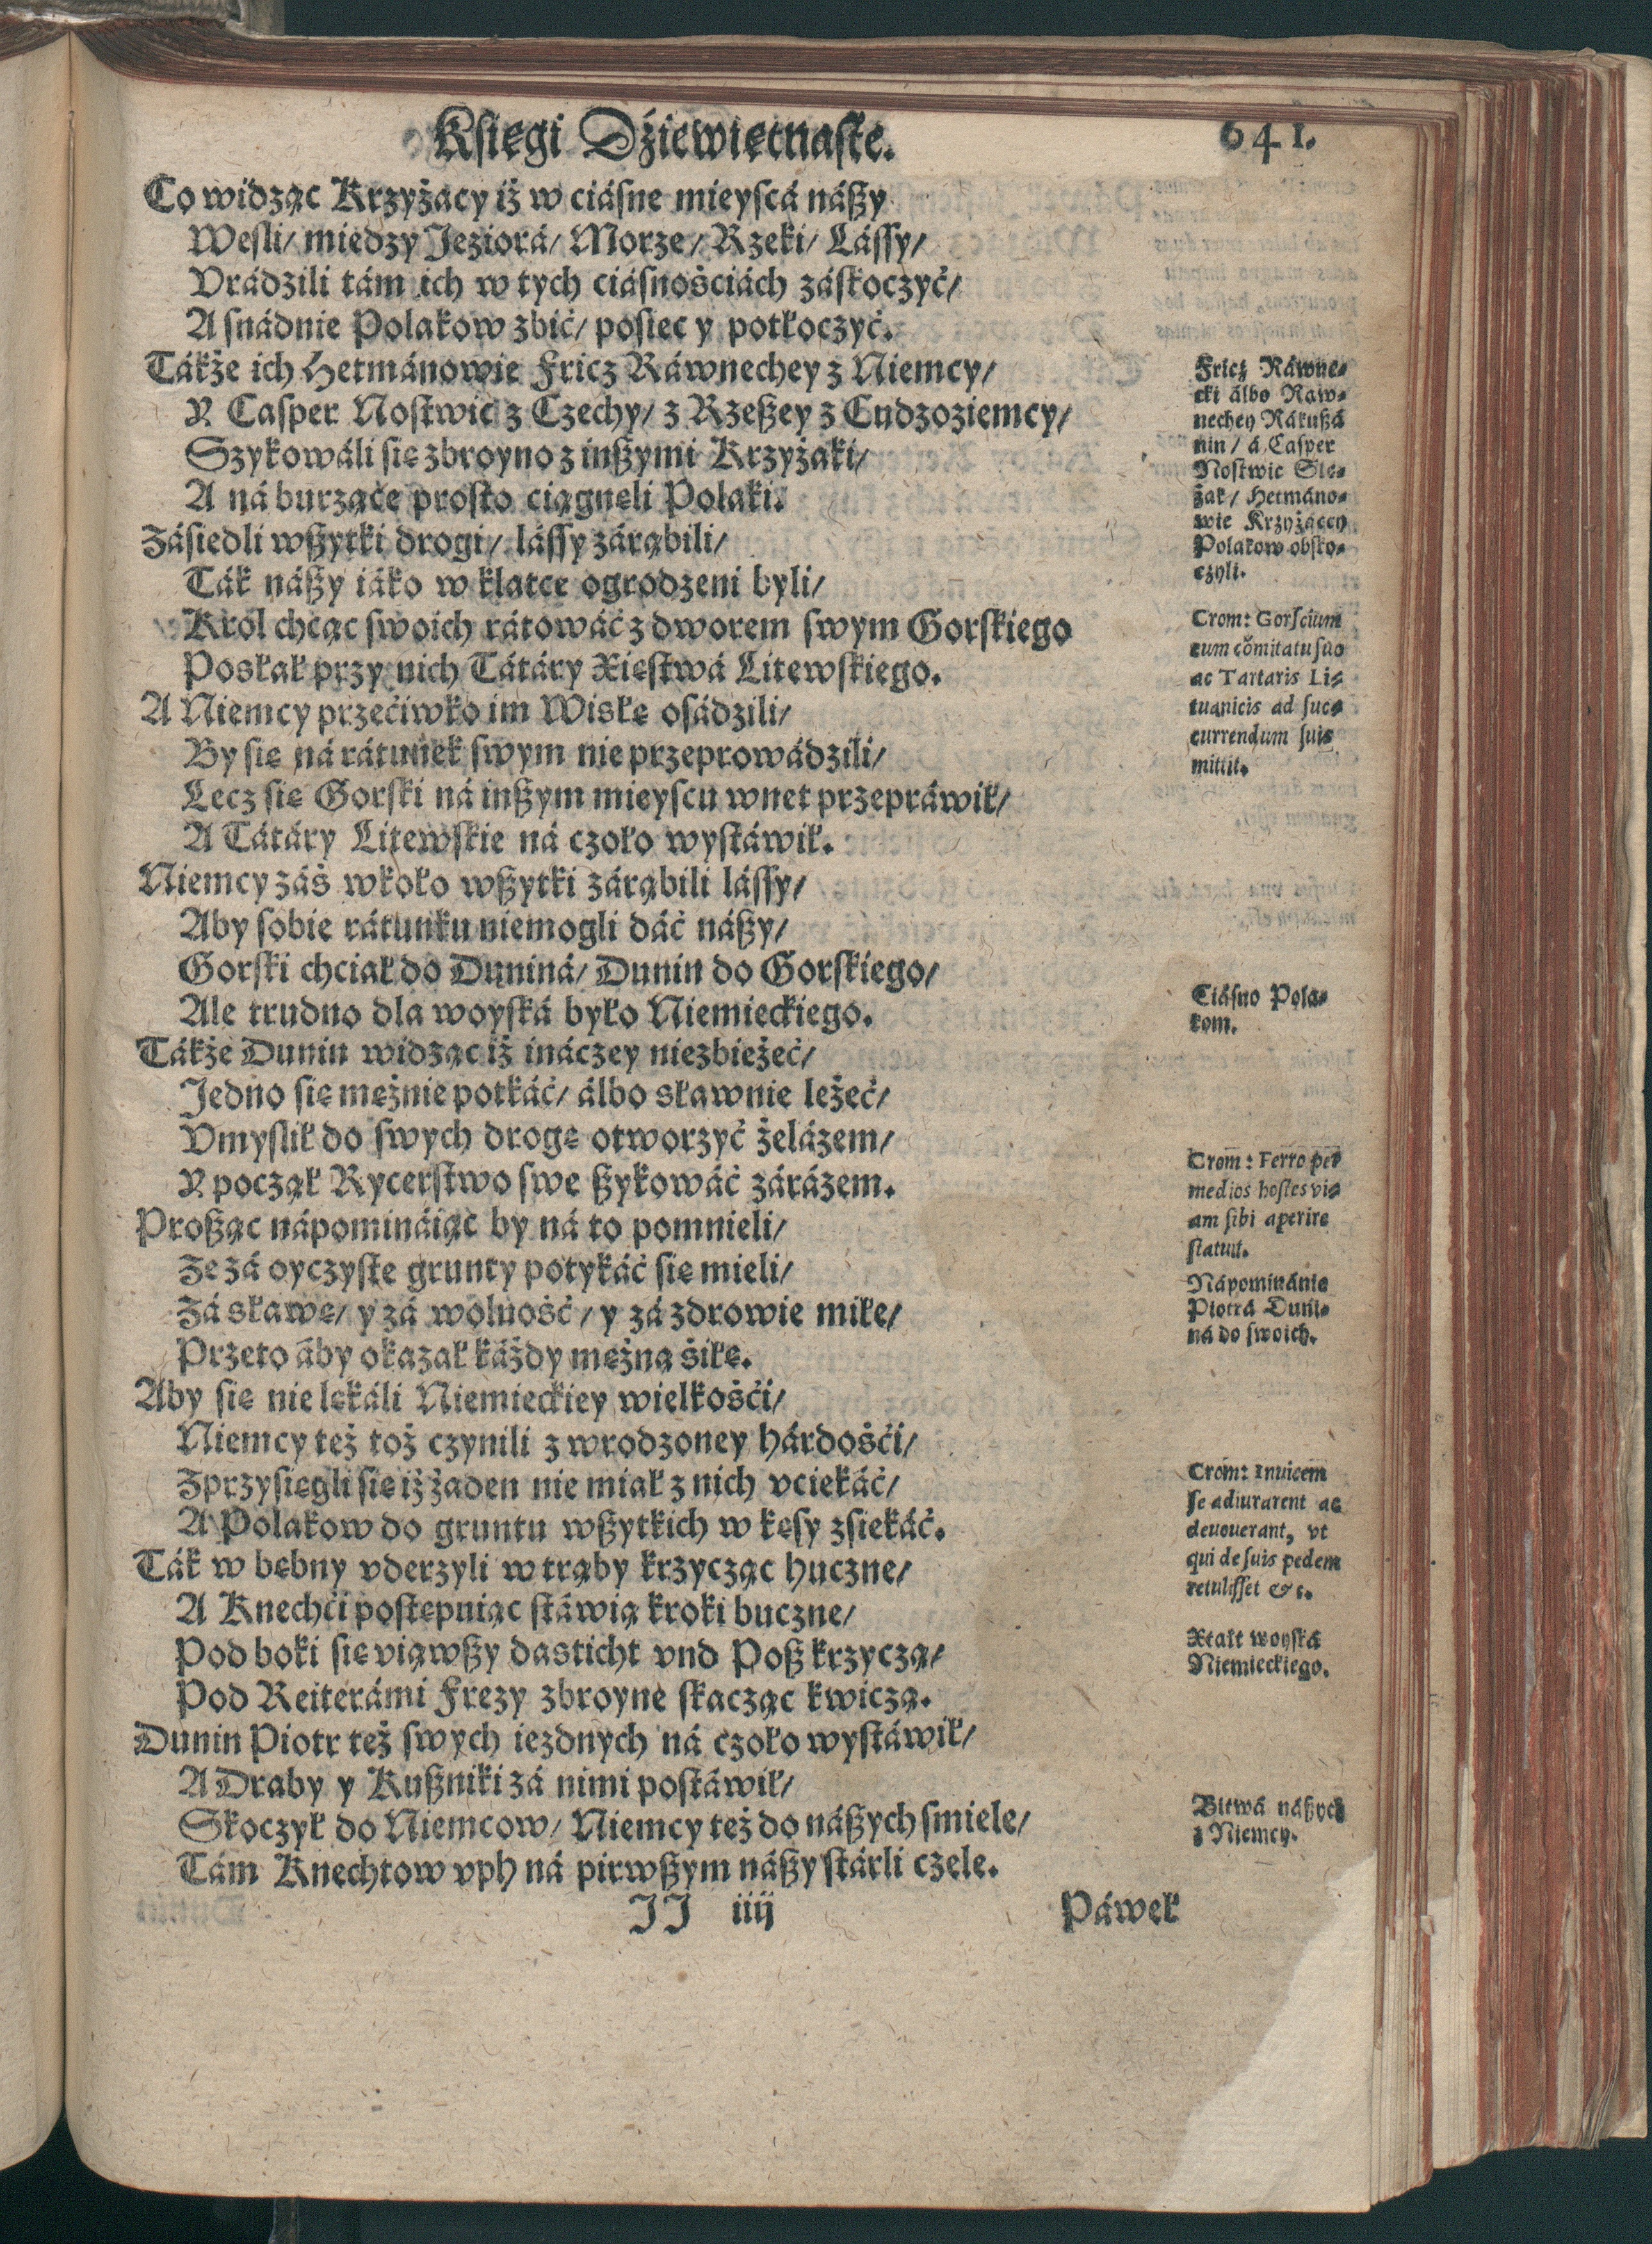 Księgi Dźiewiętnaste.
641.
Co widząc Krzyżacy iż w ciásne mieyscá nászy
Weśli/ miedzy Jeziorá/ Morze/ Rzeki/ Lássy/
Vrádzili tám ich w tych ciásnośćiách záskoczyć/
A snádnie Polakow zbić/ pośiec y potłoczyć.
Tákże ich Hetmánowie Fricz Ráwnechey z Niemcy/
Y Casper Nostwic z Czechy/ z Rzeszey z Cudzoziemcy/
Szykowáli się zbroyno z inszymi Krzyżaki/
A ná burzące prosto ciągnęli Polaki.
Záśiedli wszytki drogi/ lássy zárąbili/
Ták nászy iáko w klatce ogrodzeni byli/
Krol chcąc swoich rátowáć z dworem swym Gorskiego
Posłał przy nich Tátáry Xięstwá Litewskiego.
A Niemcy przećiwko im Wisłę osádzili/
By się ná rátunek swym nie przeprowádzili/
Lecz się Gorski ná inszym mieyscu wnet przepráwił/
A Tátáry Litewskie ná czoło wystáwił.
Niemcy záś wkoło wszytki zárąbili lássy/
Aby sobie rátunku niemogli dáć nászy/
Gorski chciał do Duniná/ Dunin do Gorskiego/
Ale trudno dla woyská było Niemieckiego.
Tákże Dunin widząc iż ináczey niezbieżeć/
Jedno się mężnie potkáć/ álbo sławnie leżeć/
Vmyslił do swych drogę otworzyć żelázem/
Y począł Rycerstwo swe szykowáć zárázem.
Prosząc nápomináiąc by ná to pomnieli/
Że zá oyczyste grunty potykáć się mieli/
Zá sławę/ y zá wolność/ y zá zdrowie miłe/
Przeto áby okazał káżdy mężną śiłę.
Aby się nie lękáli Niemieckiey wielkośći/
Niemcy też toż czynili z wrodzoney hárdośći/
Zprzyśięgli się iż żaden nie miał z nich vciekáć/
A Polakow do gruntu wszytkich w kęsy zśiekáć.
Ták w bębny vderzyli w trąby krzycząc huczne/
A Knechći postępuiąc stáwią kroki buczne/
Pod boki się viąwszy dasticht vnd Posz krzyczą/
Pod Reiterámi Frezy zbroyne skacząc kwiczą.
Dunin Piotr też swych iezdnych ná czoło wystáwił/
A Draby y Kuszniki zá nimi postáwił/
Skoczył do Niemcow/ Niemcy też do nászych smiele/
Tám Knechtow vph ná pirwszym nászy stárli czele.
JJ iiij
Páweł
Fricz Ráwne-
cki álbo Raw-
nechey Rákuszá
nin/ á Casper
Nostwic Sle-
żak/ Hetmáno-
wie Krzyżaccy
Polakow obsko-
czyli.
Crom: Gorscium
cum cōmitatu suo
ac Tartaris Li-
tuanicis ad suc-
currendum suis
mittit.
Ciásno Pola-
kom.
Crom: Ferro per
medios hostes vi-
am sibi aperire
statuit.
Nápominánie
Piotrá Duni-
ná do swoich.
Crom: Inuicem
se adiurarent ac
deuouerant, vt
qui de suis pedem
retulisset &c.
Xtałt woyská
Niemieckiego.
Bitwá nászych
z Niemcy.